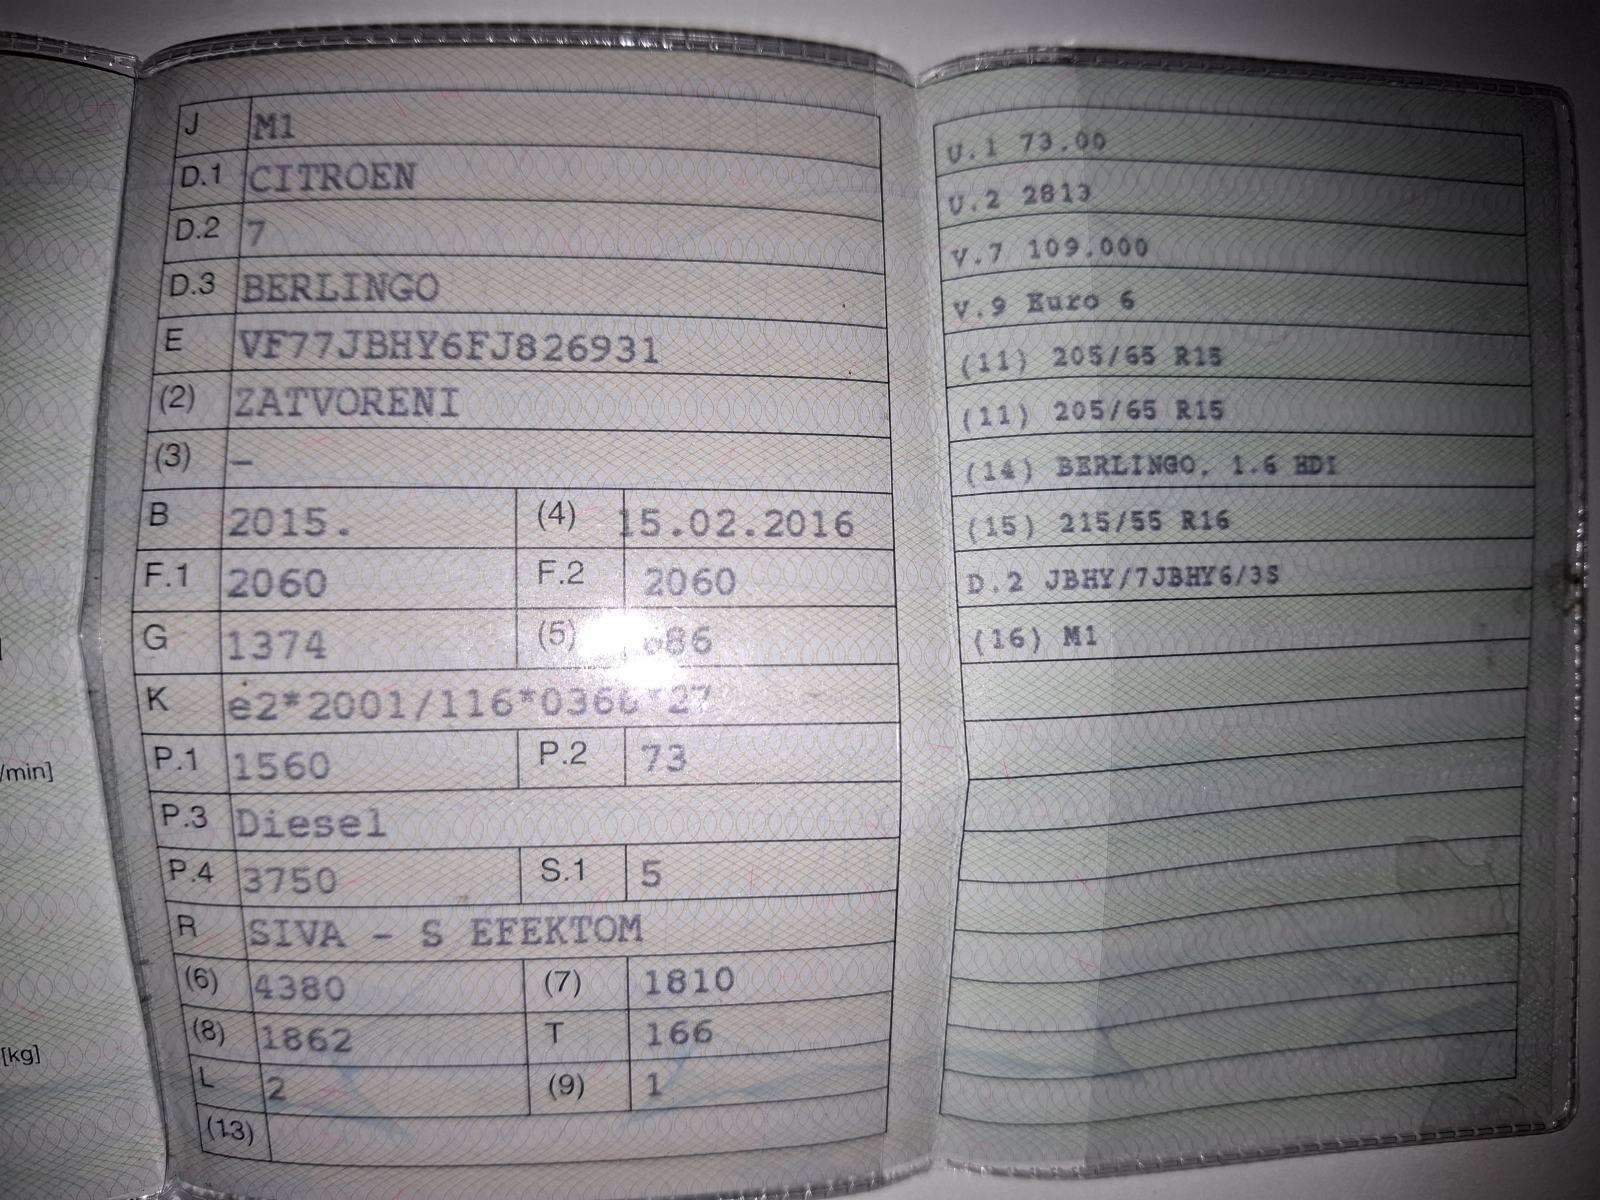 J M1
D.1 CITROEN
D.2 7
D.3 BERLINGO
E VF77JBHY6FJ826931
(2) ZATVORENI
(3) –
B 2015. (4) 15.02.2016
F.1 2060 F.2 2060
G 1374 (5)
K
P.1 1560 P.2 73
P.3 Diesel
P.4 3750 S.1 5
R SIVA - S EFEKTOM
(6) 4380 (7) 1810
(8) 1862 T 166
L 2 (9) 1
(13)
/min]
[kg]
U.1 73.00
U.2 2813
V.7 109.000
V.9 Euro 6
(11) 205/65 R15
(11) 205/65 R15
(14) BERLINGO, 1.6 HDI
(15) 215/55 R16
D.2 JBHY/7JBHY6/3S
(16) M1